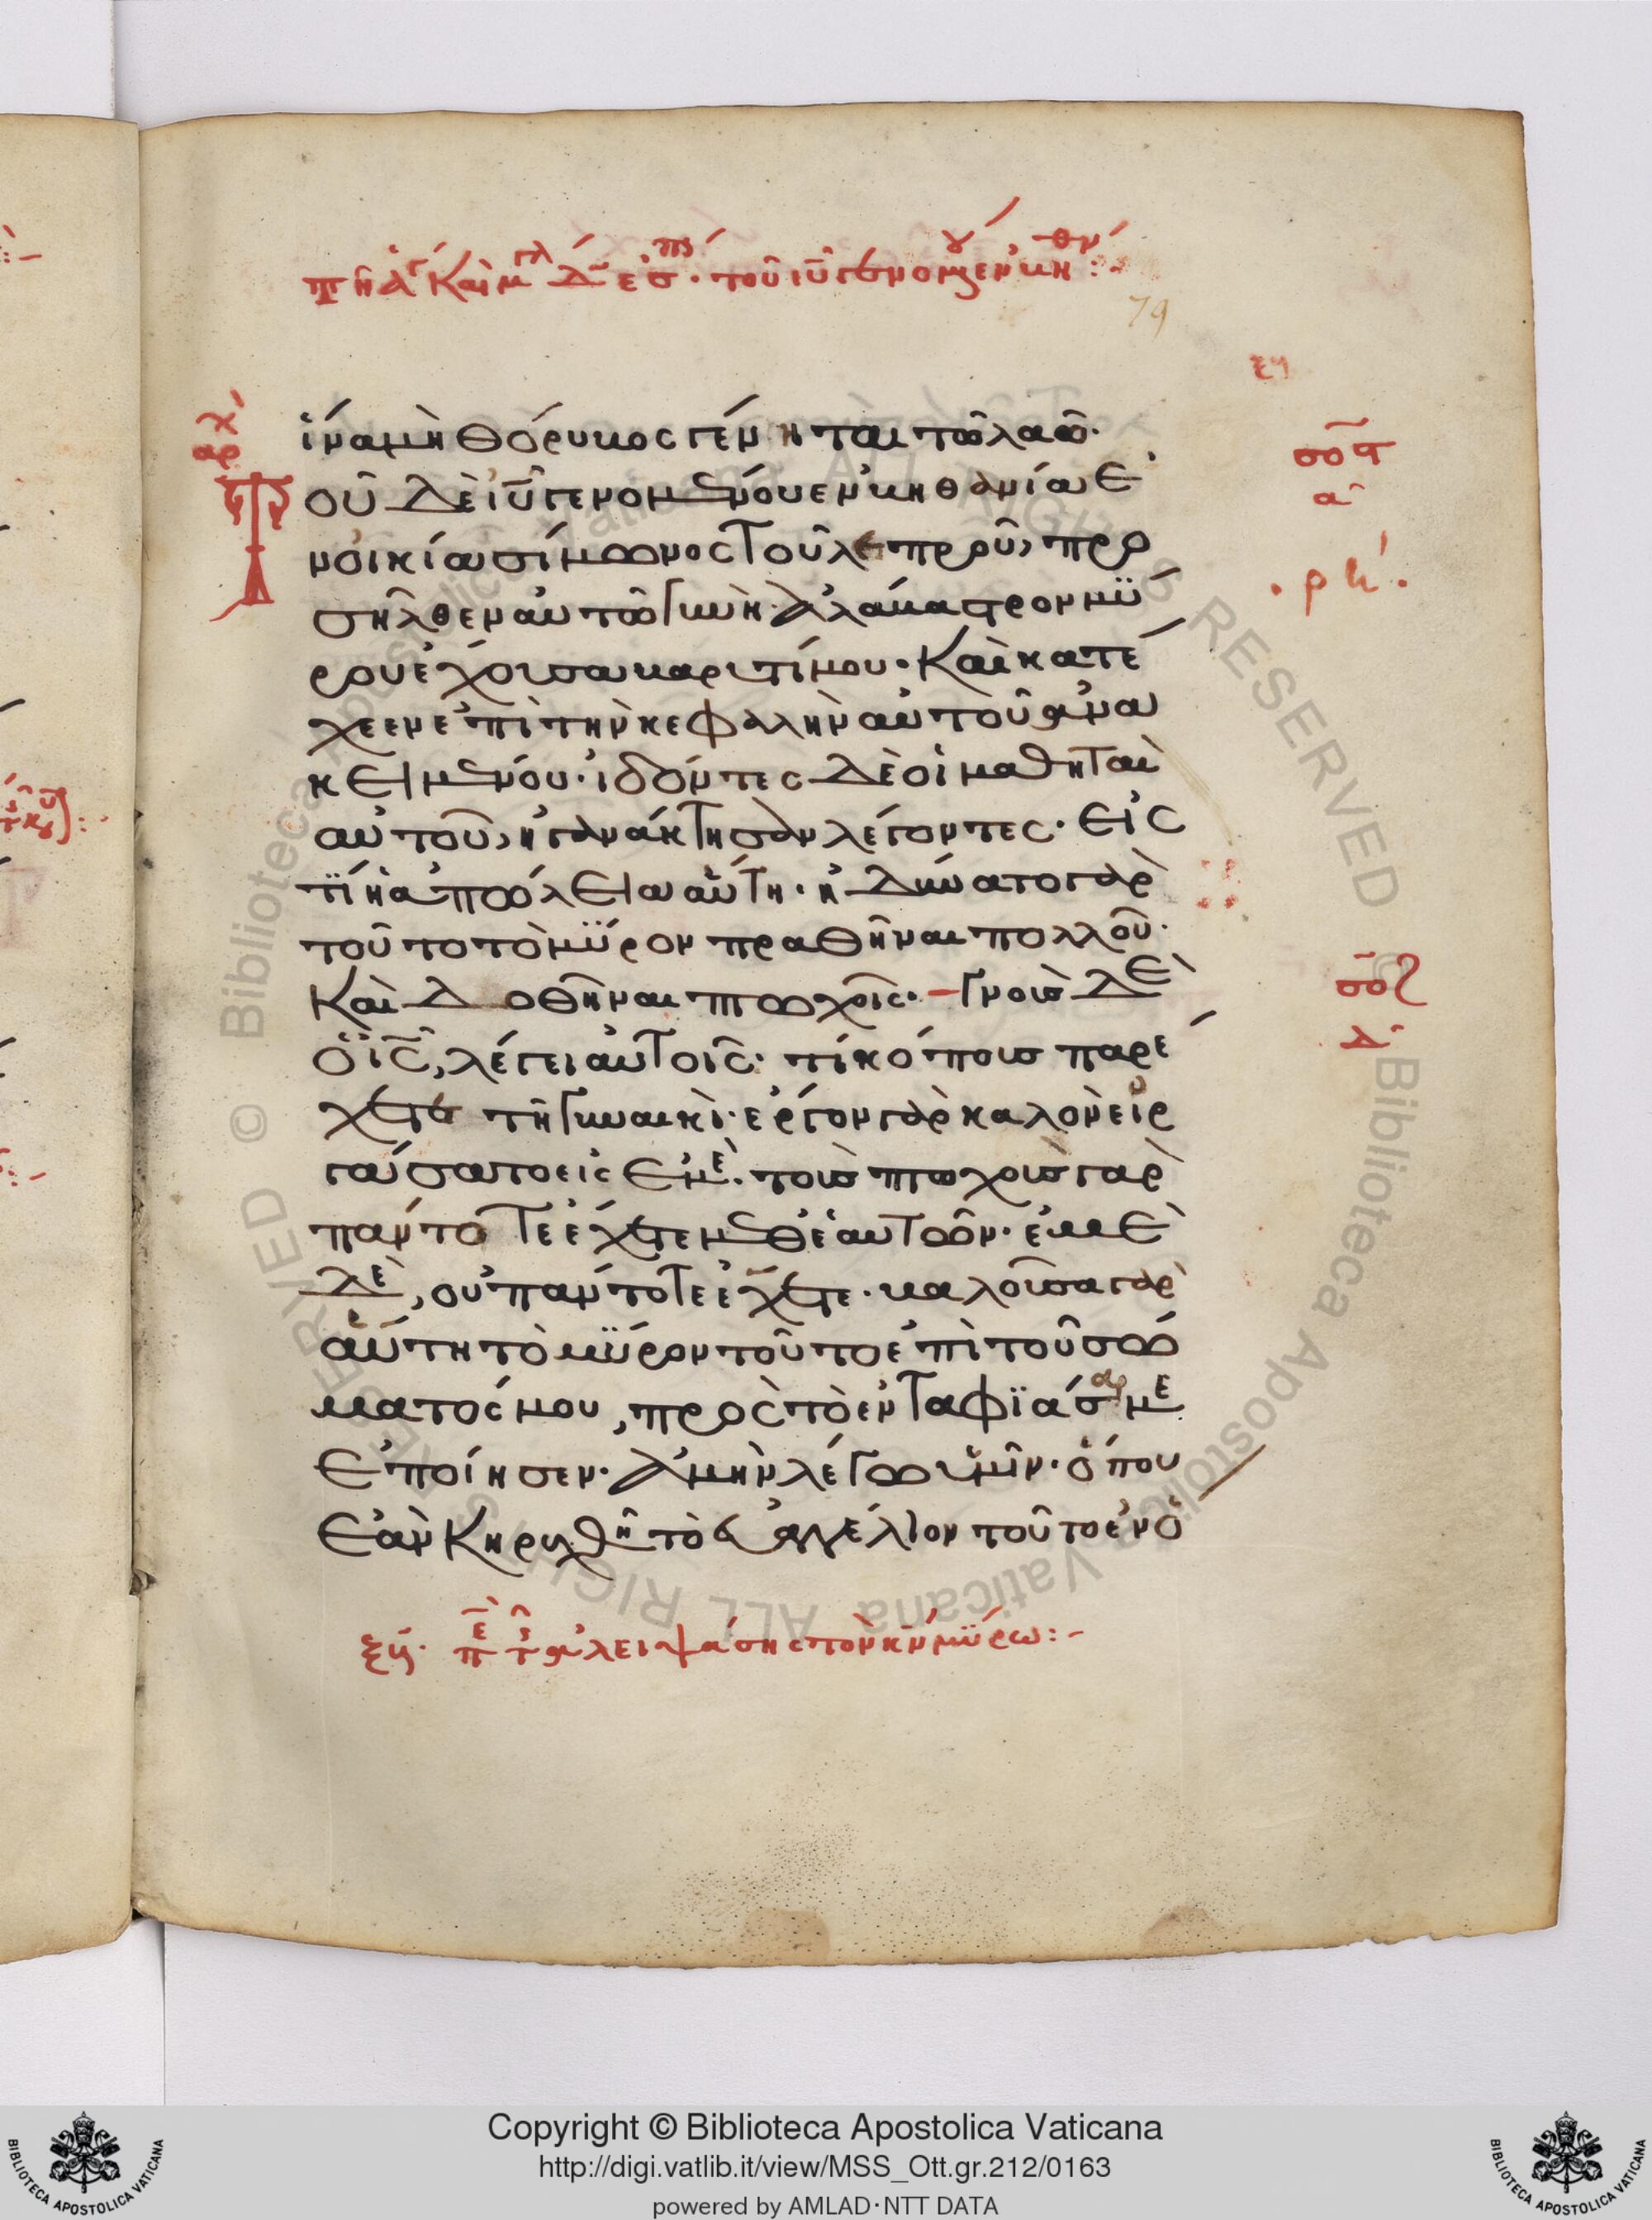 79
ξη
ἵνα μὴ θόρυβος γένηται τῶ λαῶ·
αρχ
Τοῦ δὲ ιῦ γενομένου ἐν βηθανία ἐ
ν οἰκία σίμωνος τοῦ λεπροῦ, προ
σῆλθεν αὐτῶ γυνὴ ἀλάβαστρον μύ
ρου ἔχουσα βαρυτίμου· καὶ κατέ
χεεν ἐπὶ τὴν κεφαλὴν αὐτοῦ ἀνα
κειμένου· ἰδόντες δὲ οἱ μαθηταὶ
αὐτοῦ, ἠγανάκτησαν λέγοντες· εἰς
τί ἡ ἀπώλεια αὕτη· ἠδύνατο γὰρ
τοῦτο τὸ μύρον πραθῆναι πολλοῦ·
καὶ δοθῆναι πτωχοῖς· γνοὺς δὲ
ὁ ις, λέγει αὐτοῖς· τί κόπους παρέ
χετε τῆ γυναικὶ· ἔργον γὰρ καλὸν εἰρ
γάσατο εἰς ἐμὲ· τοὺς πτωχοὺς γὰρ
πάντοτε ἔχετε μεθ' ἑαυτῶν· ἐμὲ
δὲ, οὐ πάντοτε ἔχετε· βαλοῦσα γὰρ
αὕτη τὸ μύρον τοῦτο ἐπὶ τοῦ σώ
ματός μου, πρὸς τὸ ἐνταφιάσαι με
ἐποίησεν· ἀμὴν λέγω ὑμῖν· ὅπου
ἐὰν κηρυχθῆ τὸ εὐαγγέλιον τοῦτο ἐν ὅ
ξη· πε τς ἀλειψάσης τὸν κν μύρω:-
σος
α
ρκ
σοζ
δ
Copyright © Biblioteca Apostolica Vaticana
http://digi.vatlib.it/view/MSS_Ott.gr.212/0163
powered by AMLAD·NTT DATA
BIBLIOTECA APOSTOLICA VATICANA
BIBLIOTECA APOSTOLICA VATICANA
© Biblioteca Apostolica Vaticana ALL RIGHTS RESERVED
© Biblioteca Apostolica Vaticana ALL RIGHTS RESERVED